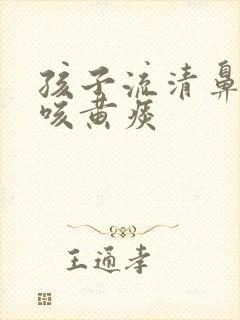 孩子流清鼻
咳黄痰
王通孝